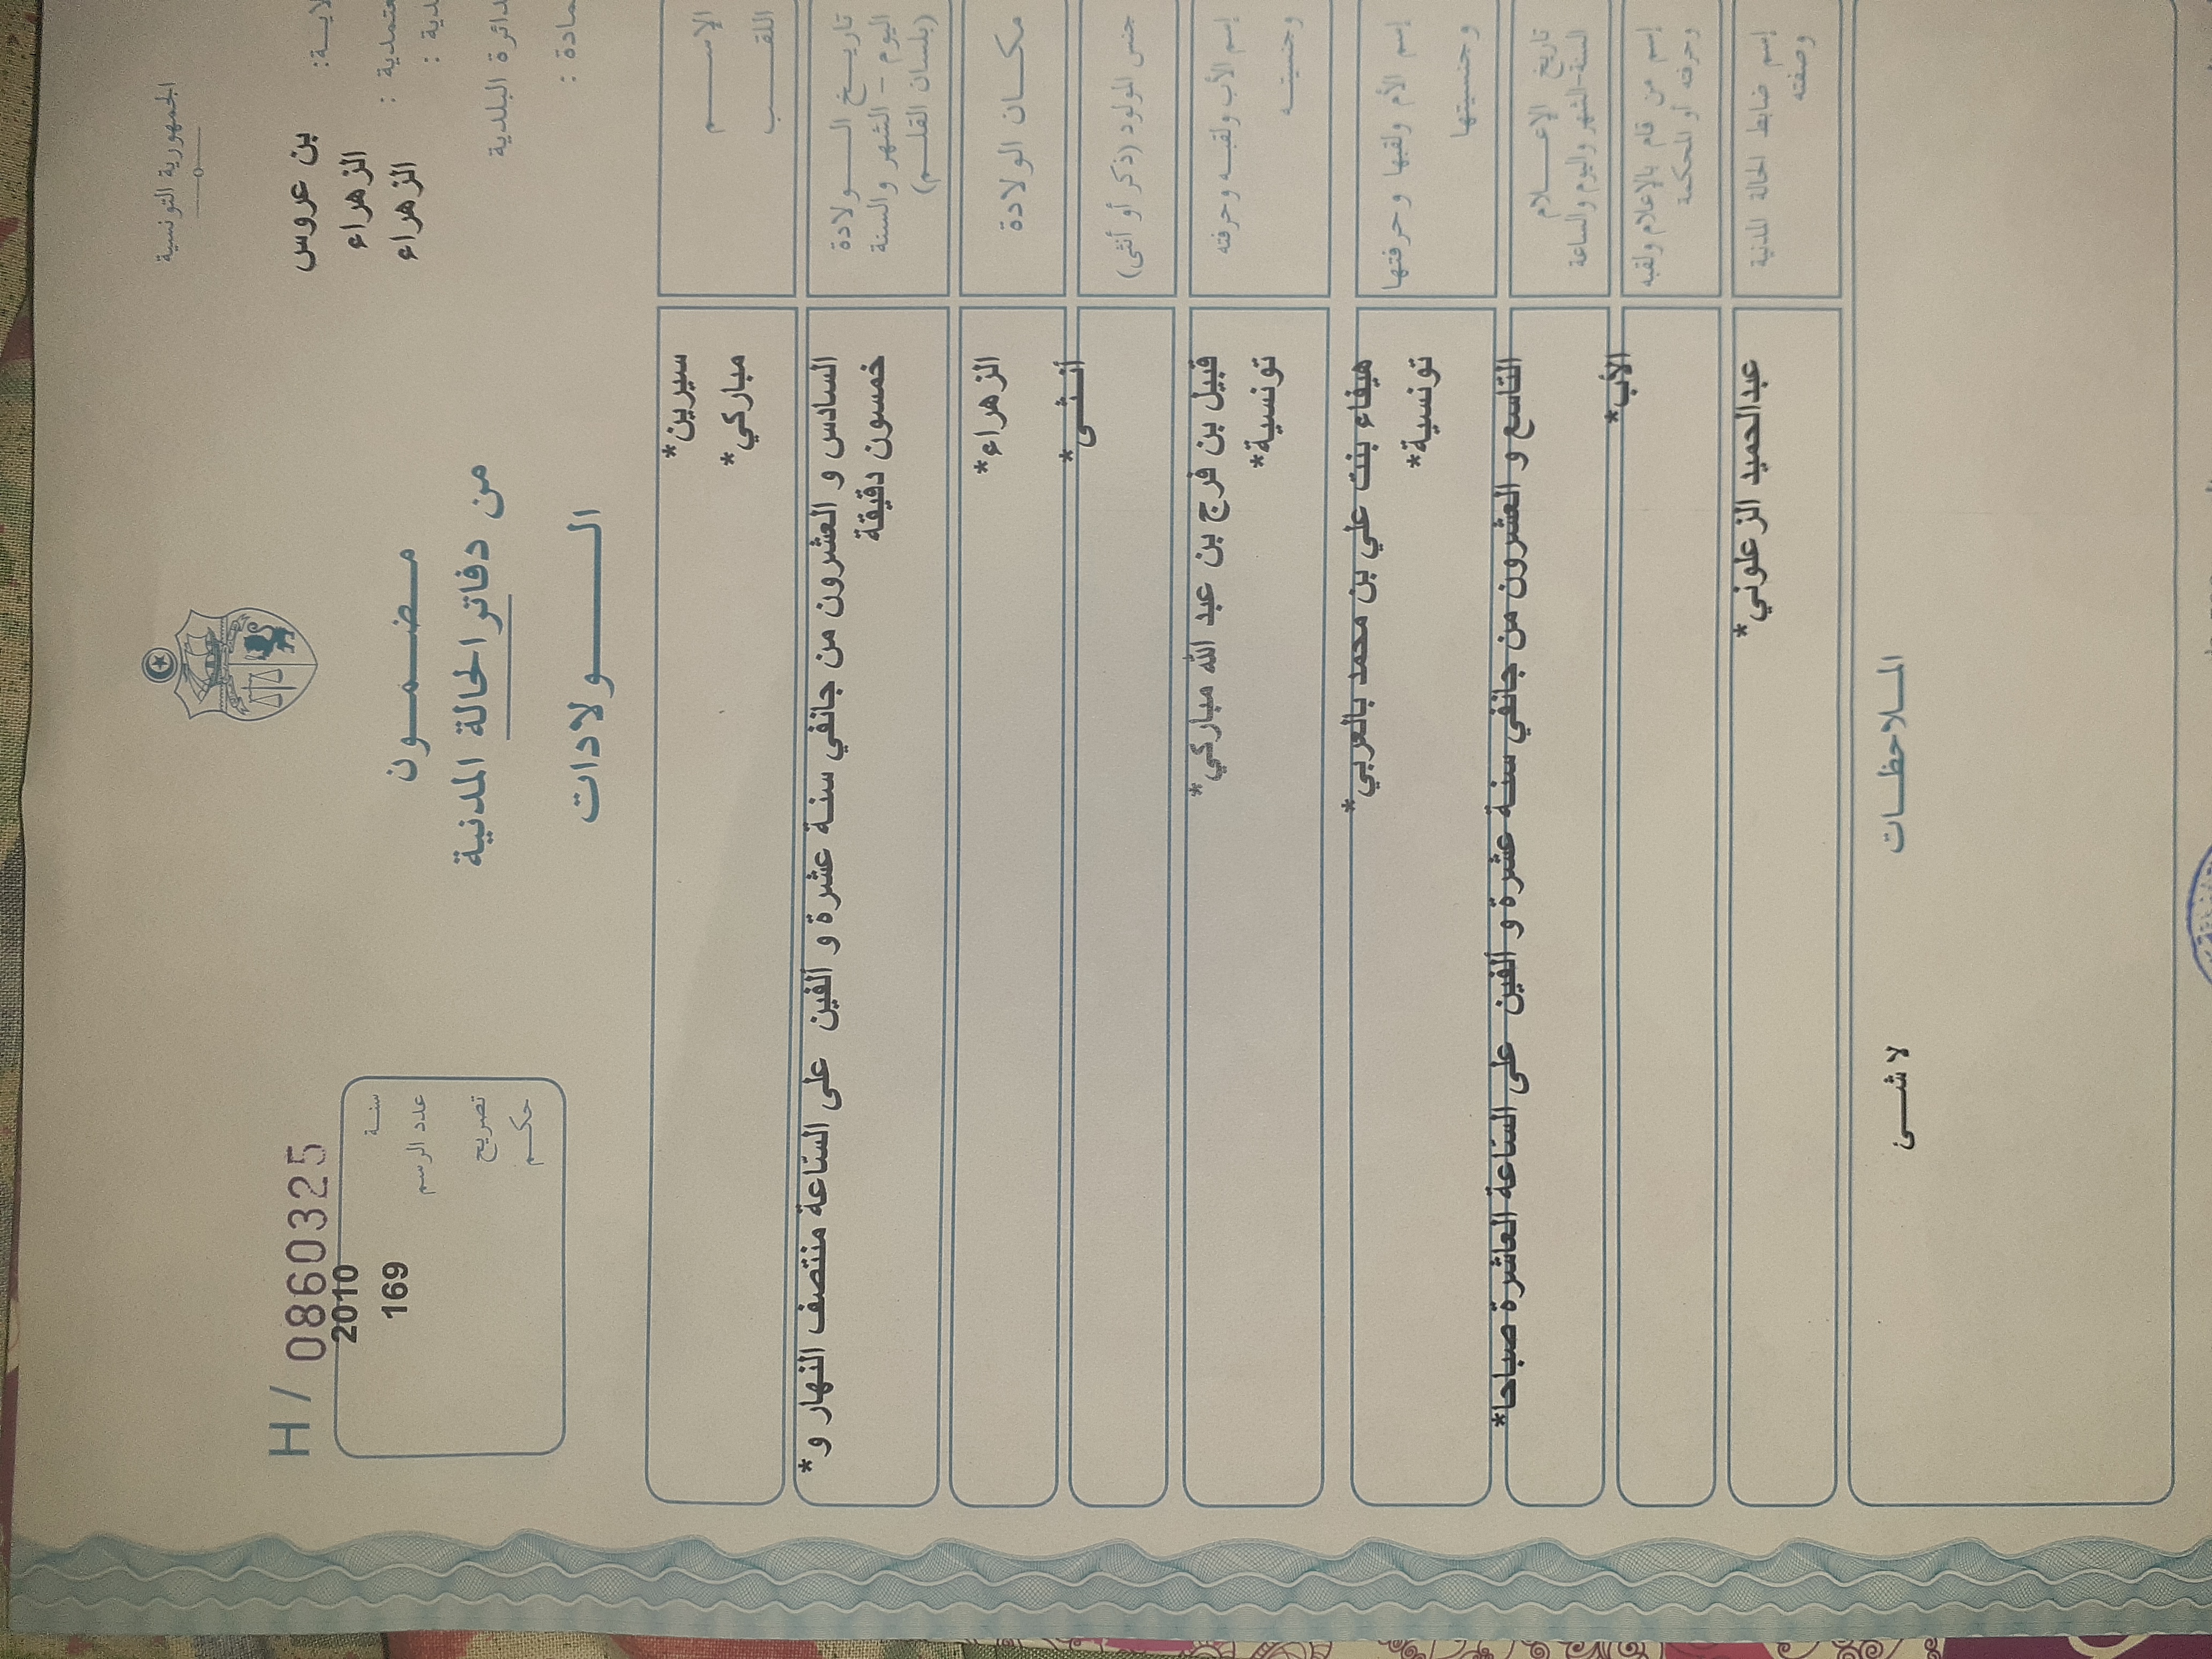 الجمهورية التونسية
بن عروس
الزهراء
الزهراء
دائرة البلدية
H / 0860325
سنة 2010
عدد الرسم 169
تصريح
حكم
مضمون
من دفاتر الحالة المدنية
الولادات
الإسم سيرين*
اللقب مباركي*
تاريخ الولادة السادس و العشرون من جانفي سنة عشرة و ألفين على الساعة منتصف النهار و*
اليوم - الشهر والسنة خمسون دقيقة
(بلسان القلم)
مكان الولادة الزهراء*
جنس المولود (ذكر أو أنثى) أنثى*
إسم الأب ولقبه وحرفته قبيل بن فرج بن عبد الله مباركي*
وجنسيته تونسية*
إسم الأم ولقبها وحرفتها هيفاء بنت علي بن محمد بالعربي*
وجنسيتها تونسية*
تاريخ الإعلام التاسع و العشرون من جانفي سنة عشرة و ألفين على الساعة العاشرة صباحا*
السنة-الشهر واليوم والساعة
إسم من قام بالإعلام ولقبه الأب*
وحرفته أو المحكمة
إسم ضابط الحالة المدنية عبدالحميد الزعلوني*
وصفته
الملاحظات
لا شئ